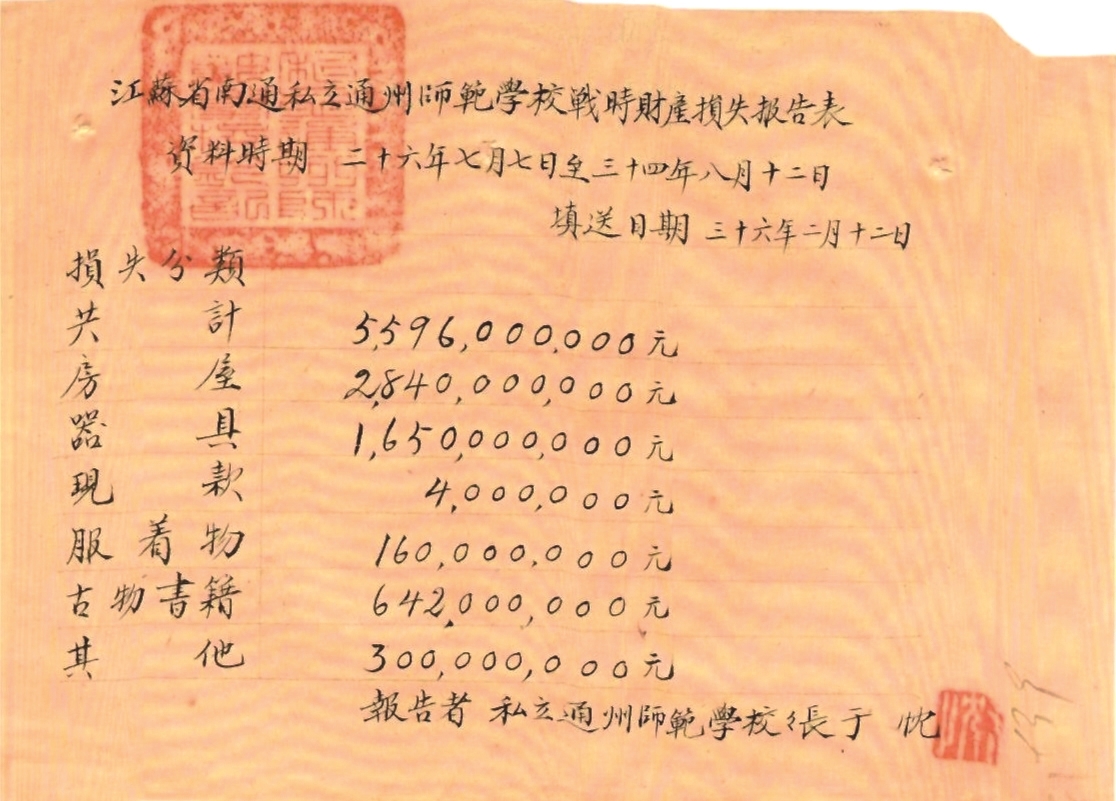 江蘇省南通私立通州師範學校戰時財產損失报告表
資料時期 二十六年七月七日至三十四年八月十二日
填送日期 三十六年二月十二日
損失分類
共計 5,596,000,000元
房屋 2,840,000,000元
器具 1,650,000,000元
現款 4,000,000元
服着物 160,000,000元
古物書籍 642,000,000元
其他 300,000,000元
報告者 私立通州師範學校張于忱